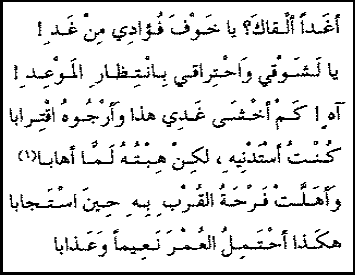 أَغَداً أَلْقاكَ؟ يا خَوْفَ فُؤادِي مِنْ غَدِ !
يا لَشَوْقي وَاحْتِراقي بِانْتِظارِ المَوْعِدِ !
آهِ ! كَمْ أَخْشَى غَدِي هذا وَأَرْجُوهُ اقْتِرابا
كُنْتُ أَسْتَدْنِيهِ ، لكِنْ هِبْتُهُ لَمَّا أهابا(١)
وَأَهَلَّتْ فَرْحَةُ القُرْبِ بِهِ حِينَ اسْتَجابا
هكَذا أَحْتَمِلُ العُمْرَ نَعِيماً وَعَذابا